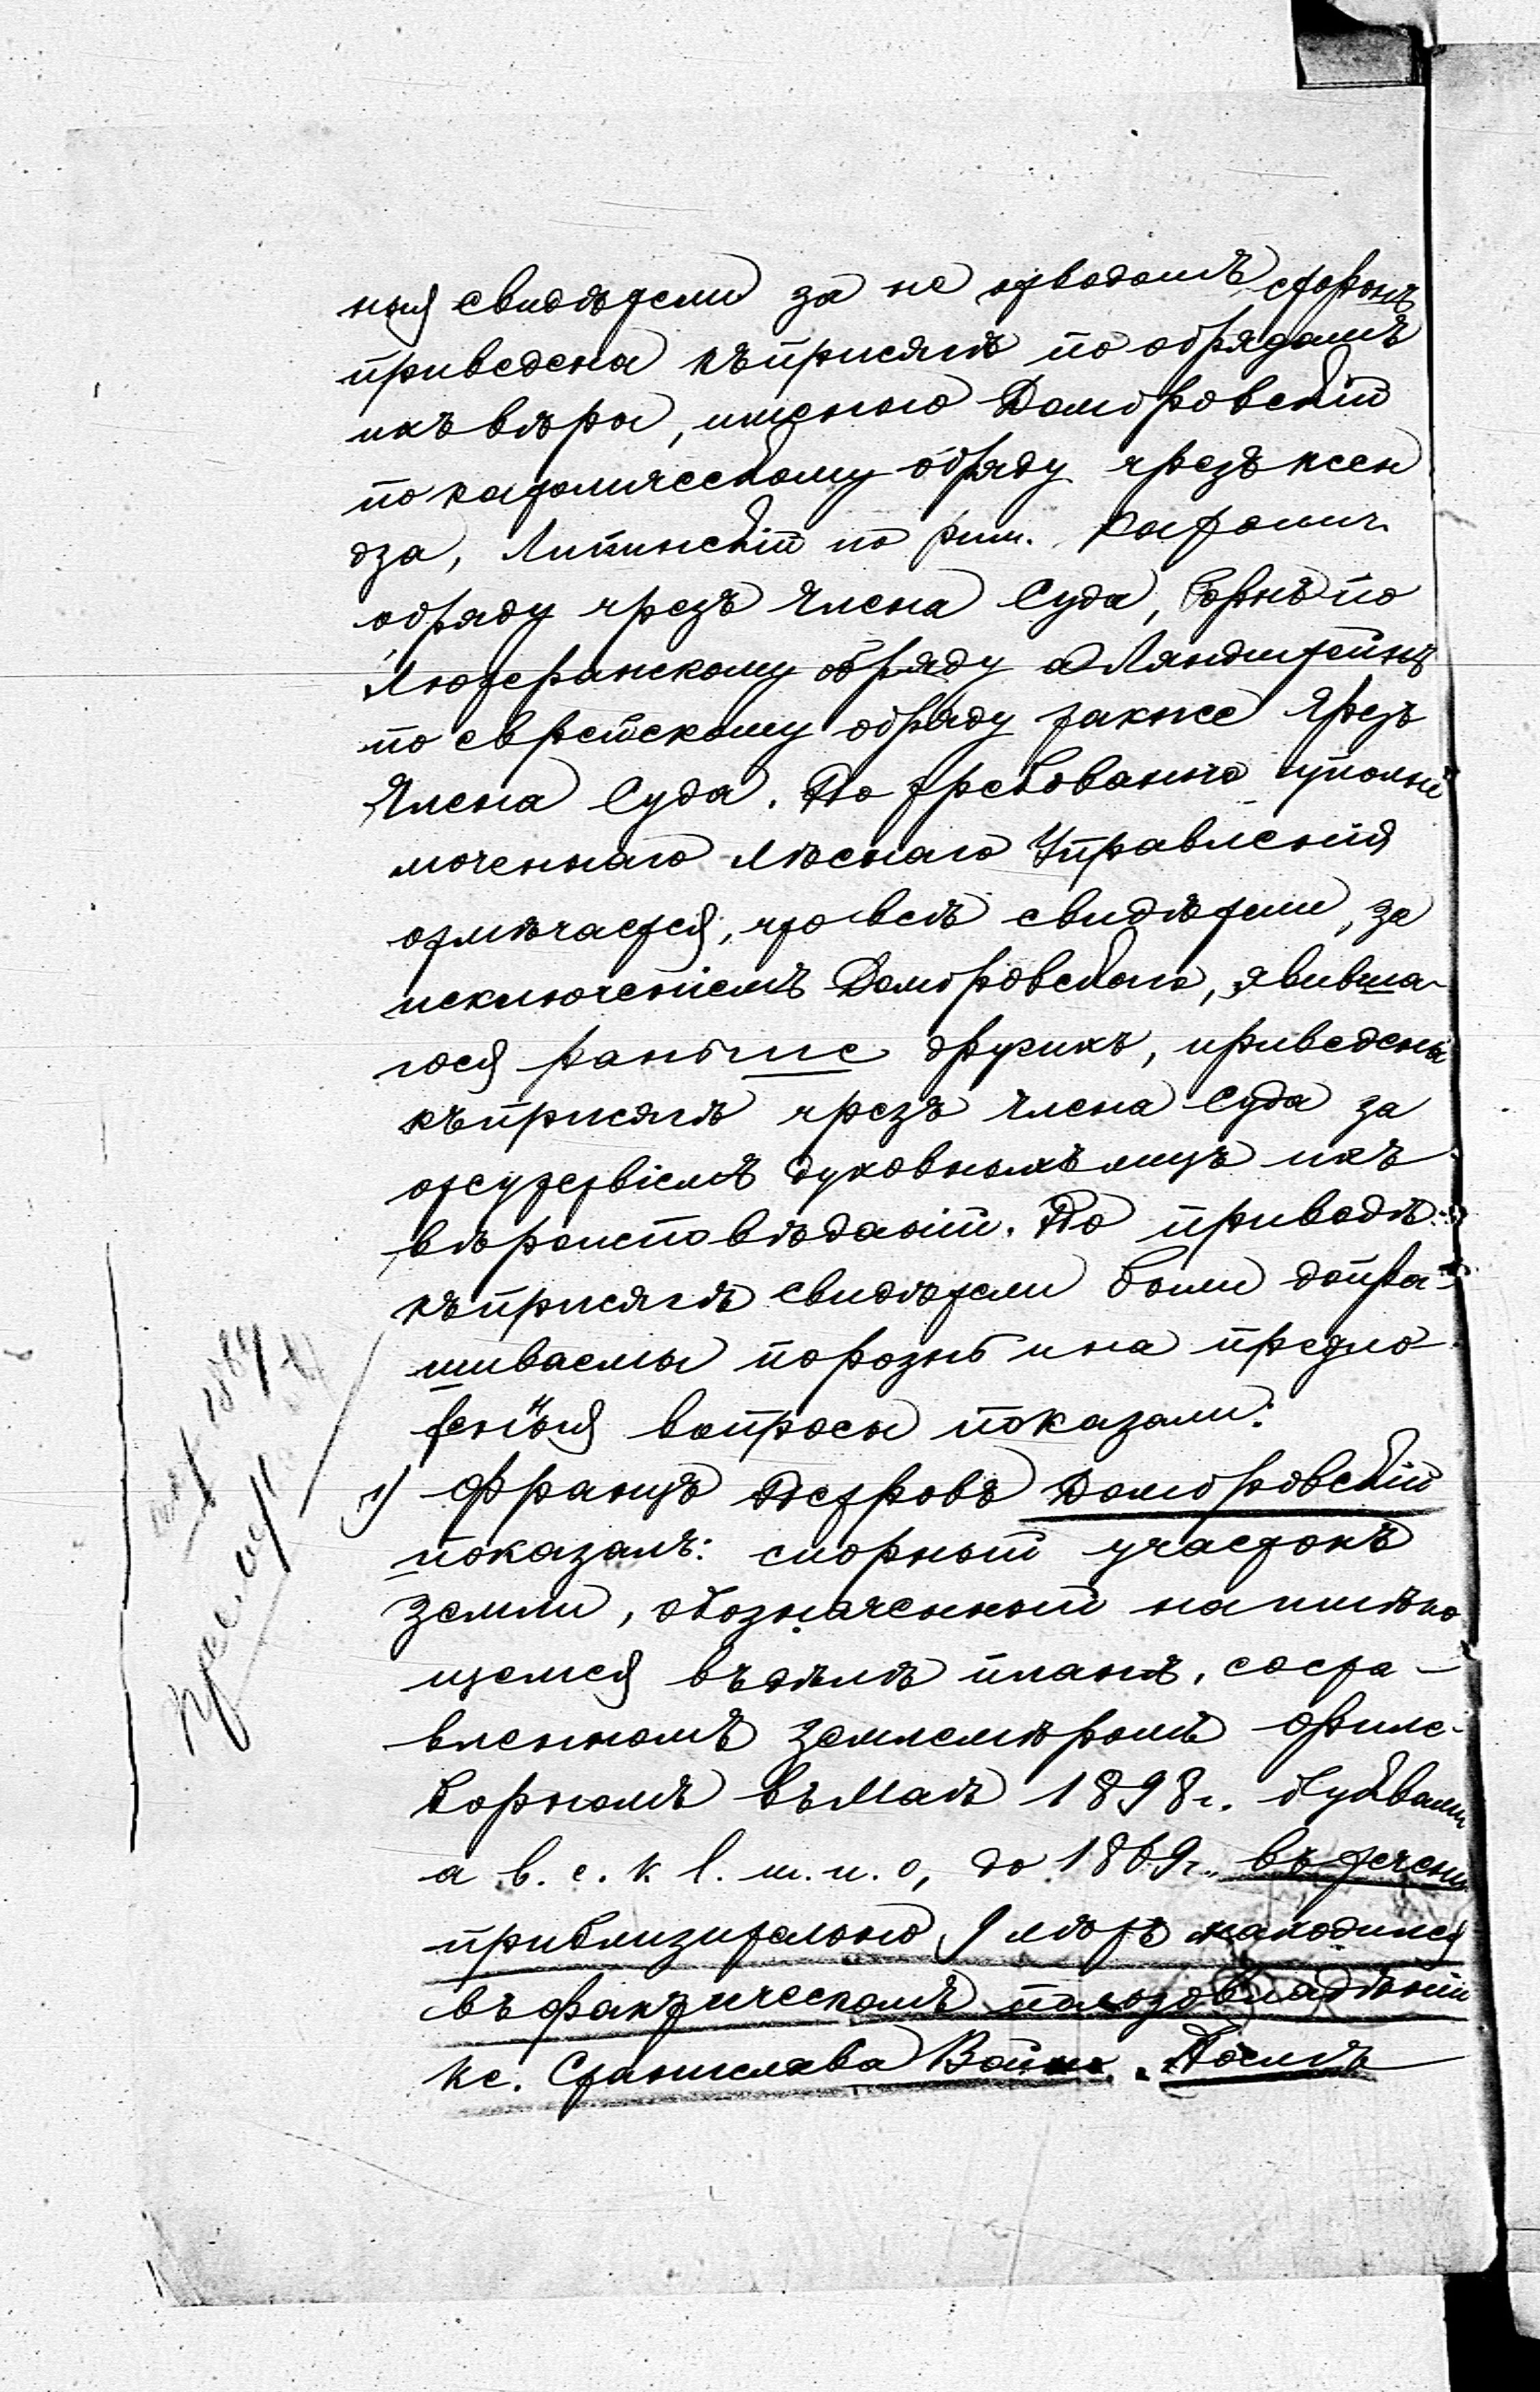 ныя свидѣтели за не отводомъ сторонъ
приведена къ присягѣ по обрядамъ
ихъ вѣры, именно Домбровскій
по католическому обряду чрезъ ксен
дза, Липинскій по рим. католич.
обряду чрезъ Члена Суда, по
Лютеранскому обряду а Ляндштейнъ
по еврейскому обряду также чрезъ
Члена Суда. По требованію уполно
моченнаго Лѣснаго Управленія
отмѣчается, что всѣ свидѣтели, за
исключеніемъ Домбровскаго, явивша-
гося раньше другихъ, приведены
къ присягѣ чрезъ Члена Суда за
отсутствіемъ духовныхъ лицъ ихъ
вѣроисповѣданій. По приводѣ
къ присягѣ свидѣтели были допра-
шиваемы порознь и на предло-
женныя вопросы показали:
1) Францъ Петровъ Домбровскій
показалъ: спорный участокъ
земли, обозначенный на имѣю
щемся въ дѣлѣ планѣ, соста-
вленномъ землемѣромъ Филе-
борномъ въ Маѣ 1898 г. буквами
a b. c. k l. m. n. o, до 1869 г. въ теченіи
приблизительно 9 лѣтъ находился
въ фактическомъ пользовладѣніи
кс. Станислава . Послѣ
1869